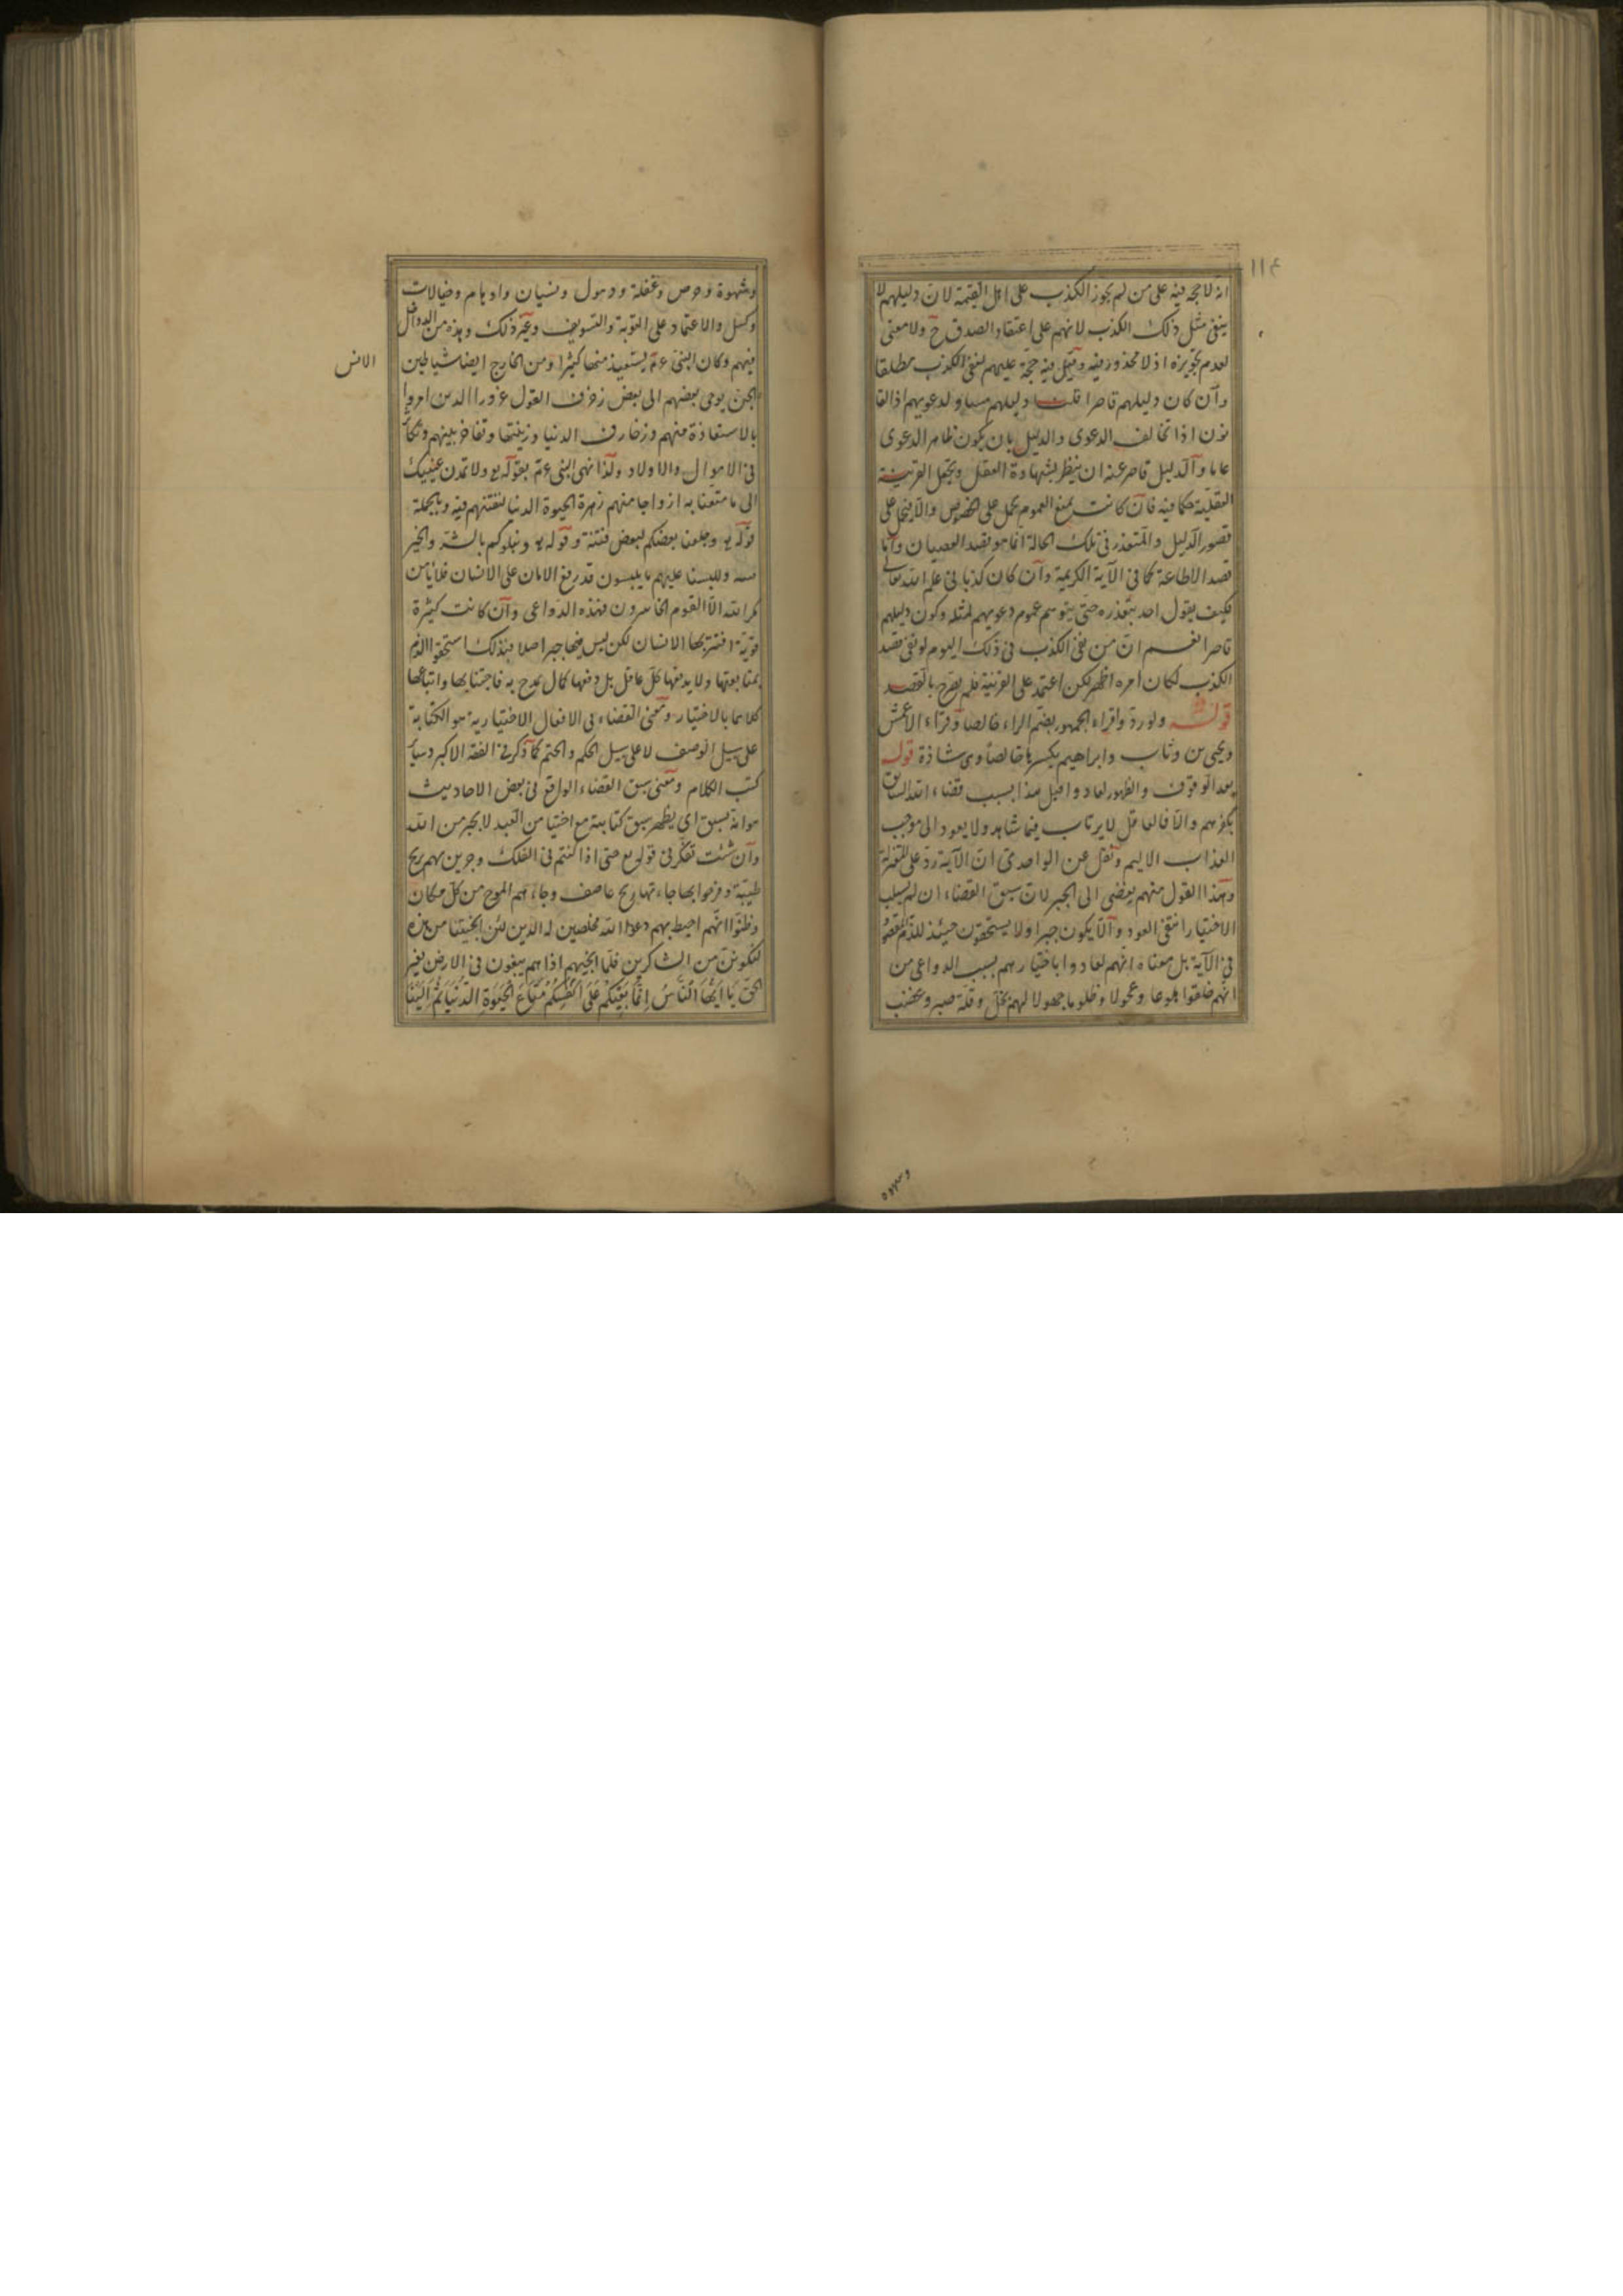 ١١٤
انه لا حجه فيه على من لم يجوز الكذب على اهل القيمة لان دليلهم لا
ينفى مثل ذلك الكذب لانهم على اعتقاد الصدق ح ولا معنى
لعدم تجويزه اذ لا محذور فيه وقيل فيه حجة عليهم بنفى الكذب مطلقا
وان كان دليلهم قاصرا قلت دليلهم مساو لدعويهم اذ القا
نون اذا تخالف الدعوى والدليل بان يكون ظاهر الدعوى
عاما والدليل قاصر عنه ان ينظر بشهادة العقل ويجعل القرينة
العقلية حكما فيه فان كانت بمنع العموم يحمل على الخصوص والا فيحمل على
قصور الدليل والمتعذر فى تلك الحالة انما هو بقصد العصيان واما
قصد الاطاعة كما فى الآية الكريمة وان كان كذبا فى علم الله تعالى
فكيف يقول احد بتعذره حتى يتوهم عموم دعويهم لمثله وكون دليلهم
قاصرا نعم ان من نفى الكذب فى ذلك اليوم لو نفى قصد
الكذب لكان امره اظهر لكن اعتمد على القرينة فلم يصرح بالقصد
قوله ولو ردوا قراءة الجمهور بضم الراء خالصا وقراء الاعمش
ويحيى بن وثاب وابراهيم بكسرها خالصا وهى شاذة قوله
بعد الوقوف والظهور لعادوا قيل هذا بسبب قضاء الله السابق
بكفرهم والا فالعاقل لا يرتاب فيما شاهد ولا يعود الى موجب
العذاب الاليم ونقل عن الواحدى ان الآية رد على المعتزلة
وهذا القول منهم يفضى الى الجبر لان سبق القضاء ان لم يسلب
الاختيار انتفى العود والا يكون جبرا ولا يستحقون حينئذ للذم
فى الآية بل معناه انهم لعادوا باختيارهم بسبب الدواعى من
انهم خلقوا هلوعا وعجولا وظلوما جهولا لهم بخل وقلة صبر وغضب
وشهوة
وشهوة وحرص وغفلة وذهول ونسيان واوهام وخيالات
وكسل والاعتماد على التوبة والتسويف وغير ذلك وهذه من الدواخل
فيهم وكان النبى عم يستعيذ منها كثيرا ومن الخارج ايضا شياطين
الانس
الجن يوحى بعضهم الى بعض زخرف القول غرورا الذين امروا
بالاستعاذة منهم وزخارف الدنيا وزينتها وتفاخر بينهم وتكاثر
فى الاموال والاولاد ولذا نهى النبى عم بقوله تع ولا تمدن عينيك
الى ما متعنا به ازواجا منهم زهرة الحيوة الدنيا لنفتنهم فيه وبالجملة
قوله تع وجعلنا بعضكم لبعض فتنة وقوله تع ونبلوكم بالشر والخير
فتنة وللبسنا عليهم ما يلبسون قد رفع الامان على الانسان فلا يأمن
مكر الله الا القوم الخاسرون فهذه الدواعى وان كانت كثيرة
قوية افتتن بها الانسان لكن ليس فيها جبر اصلا فبذلك استحقوا الذم
بمتابعتها ولا يدفنها كل عاقل بل دفعها كمال يمدح به فاجتنابها واتباعها
كلاهما بالاختيار ومعنى القضاء فى الافعال الاختيارية هو الكتابة
على سبيل الوصف لا على سبيل الحكم والحتم كما ذكر فى الفقه الاكبر وسائر
كتب الكلام ومعنى سبق القضاء الواقع فى بعض الاحاديث
هو انه يسبق اى يظهر سبق كتابته مع اختيار من العبد لا بجبر من الله
وان شئت تفكر فى قوله تع حتى اذا كنتم فى الفلك وجرين بهم بريح
طيبة وفرحوا بها جاءتها ريح عاصف وجاءهم الموج من كل مكان
وظنوا انهم احيط بهم دعوا الله مخلصين له الدين لئن انجيتنا من هذه
لنكونن من الشاكرين فلما انجيهم اذا هم يبغون فى الارض بغير
الحق يَا اَيُّهَا النَّاسُ اِنَّمَا بَغْيُكُمْ عَلَى اَنْفُسِكُمْ مَتَاعَ الْحَيٰوةِ الدُّنْيَا ثُمَّ اِلَيْنَا